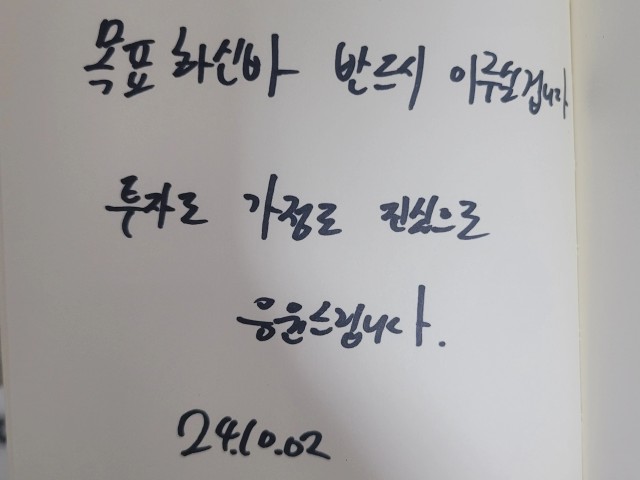 목표하신바 반드시 이루실겁니다
투자도 가정도 진심으로
응원드립니다.
24.10.02